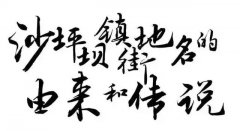 沙坪坝镇街地名的
由来和传说